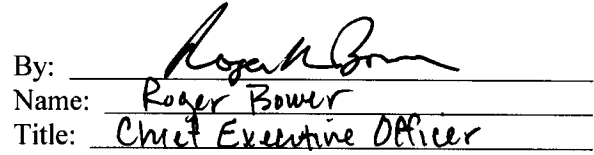 By: Roger Bower
Name: Roger Bower
Title: Chief Executive Officer